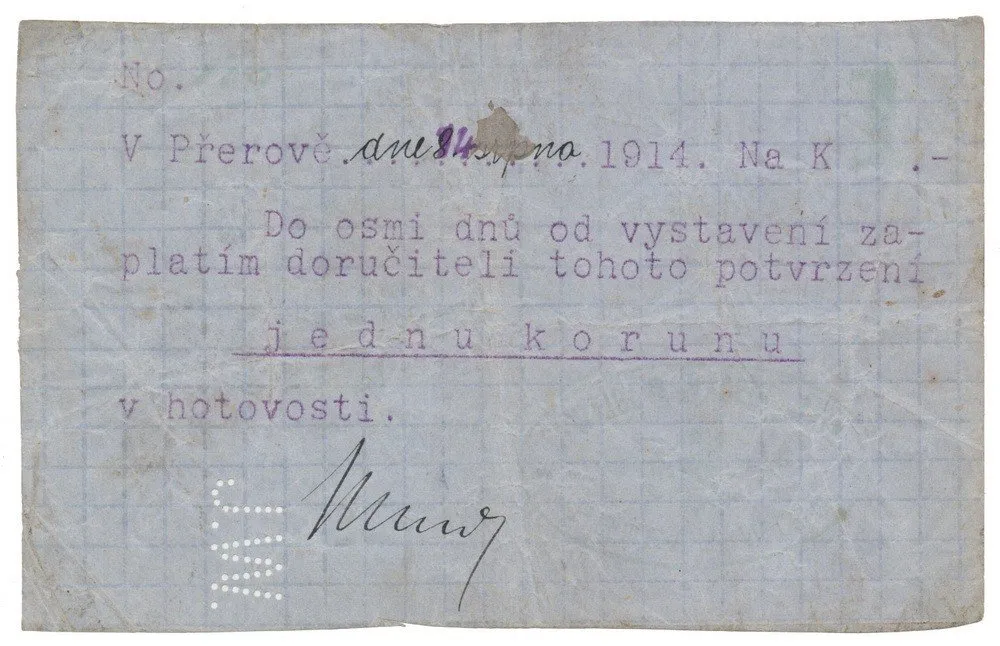 No.
V Přerově dne 14 srpna 1914. Na K .-
Do osmi dnů od vystavení za-
platím doručiteli tohoto potvrzení
jednu korunu
v hotovosti.